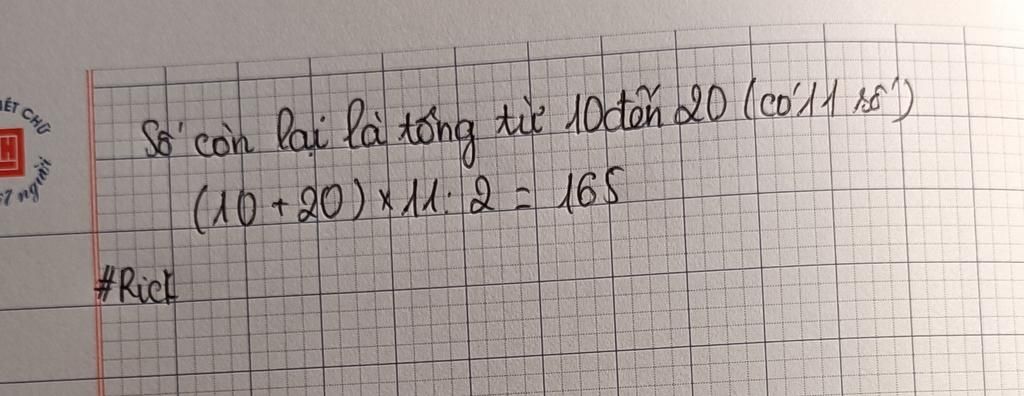 ẾT CHỮ
H
người
Số còn lại là tổng từ 10 đến 20 (có 11 số)
(10 + 20) x 11 : 2 = 165
#Rick